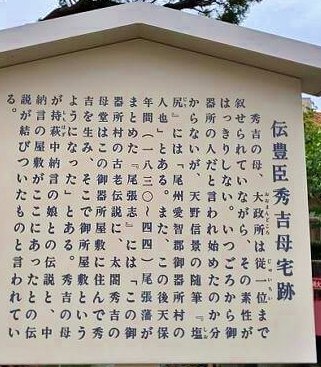 伝豊臣秀吉母宅跡
秀吉の母、大政所は従一位まで
叙せられていながら、その素性が
はっきりしない。いつごろから御
器所の人だと言われ始めたのか分
からないが、天野信景の随筆『塩
尻』には「尾州愛智郡御器所村の
人也」とある。また、この後天保
年間(一八三〇〜四四)尾張藩が
まとめた『尾張志』には「この御
器所村の古老伝説に、太閤秀吉の
母堂はこの御器所屋敷に住んで秀
吉を生み、そこで御所屋敷という
ようになった」とある。秀吉の母
が持萩中納言の娘との伝説と、中
納言の屋敷がここにあったとの伝
説が結びついたものと言われてい
る。